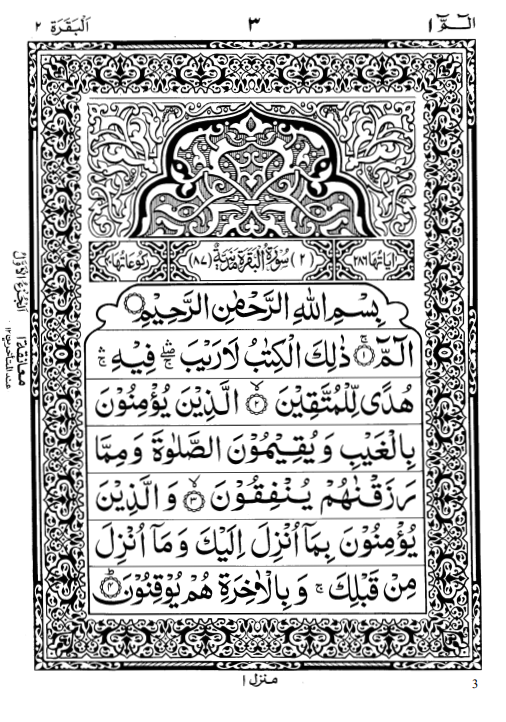 الٓمّٓ ۱ ۳ اَلْبَقَرَة ۲
اٰيَاتُهَا ۲۸۶ (۲) سُوْرَةُ الْبَقَرَةِ مَدَنِيَّةٌ (۸۷) رُكُوْعَاتُهَا
بِسْمِ اللهِ الرَّحْمٰنِ الرَّحِيْمِ
الٓمّٓ ۚ ﴿۱﴾ ذٰلِكَ الْكِتٰبُ لَا رَيْبَ ۛۖ فِيْهِ ۛۚ
هُدًى لِّلْمُتَّقِيْنَ ۙ ﴿۲﴾ الَّذِيْنَ يُؤْمِنُوْنَ
بِالْغَيْبِ وَ يُقِيْمُوْنَ الصَّلٰوةَ وَ مِمَّا
رَزَقْنٰهُمْ يُنْفِقُوْنَ ۙ ﴿۳﴾ وَ الَّذِيْنَ
يُؤْمِنُوْنَ بِمَآ اُنْزِلَ اِلَيْكَ وَ مَآ اُنْزِلَ
مِنْ قَبْلِكَ ۚ وَ بِالْاٰخِرَةِ هُمْ يُوْقِنُوْنَ ؕ ﴿۴﴾
اَلْجُزْءُ الْاَوَّلُ
معانقة ۱
عند المتأخرين ۱۲
منزل ۱
3